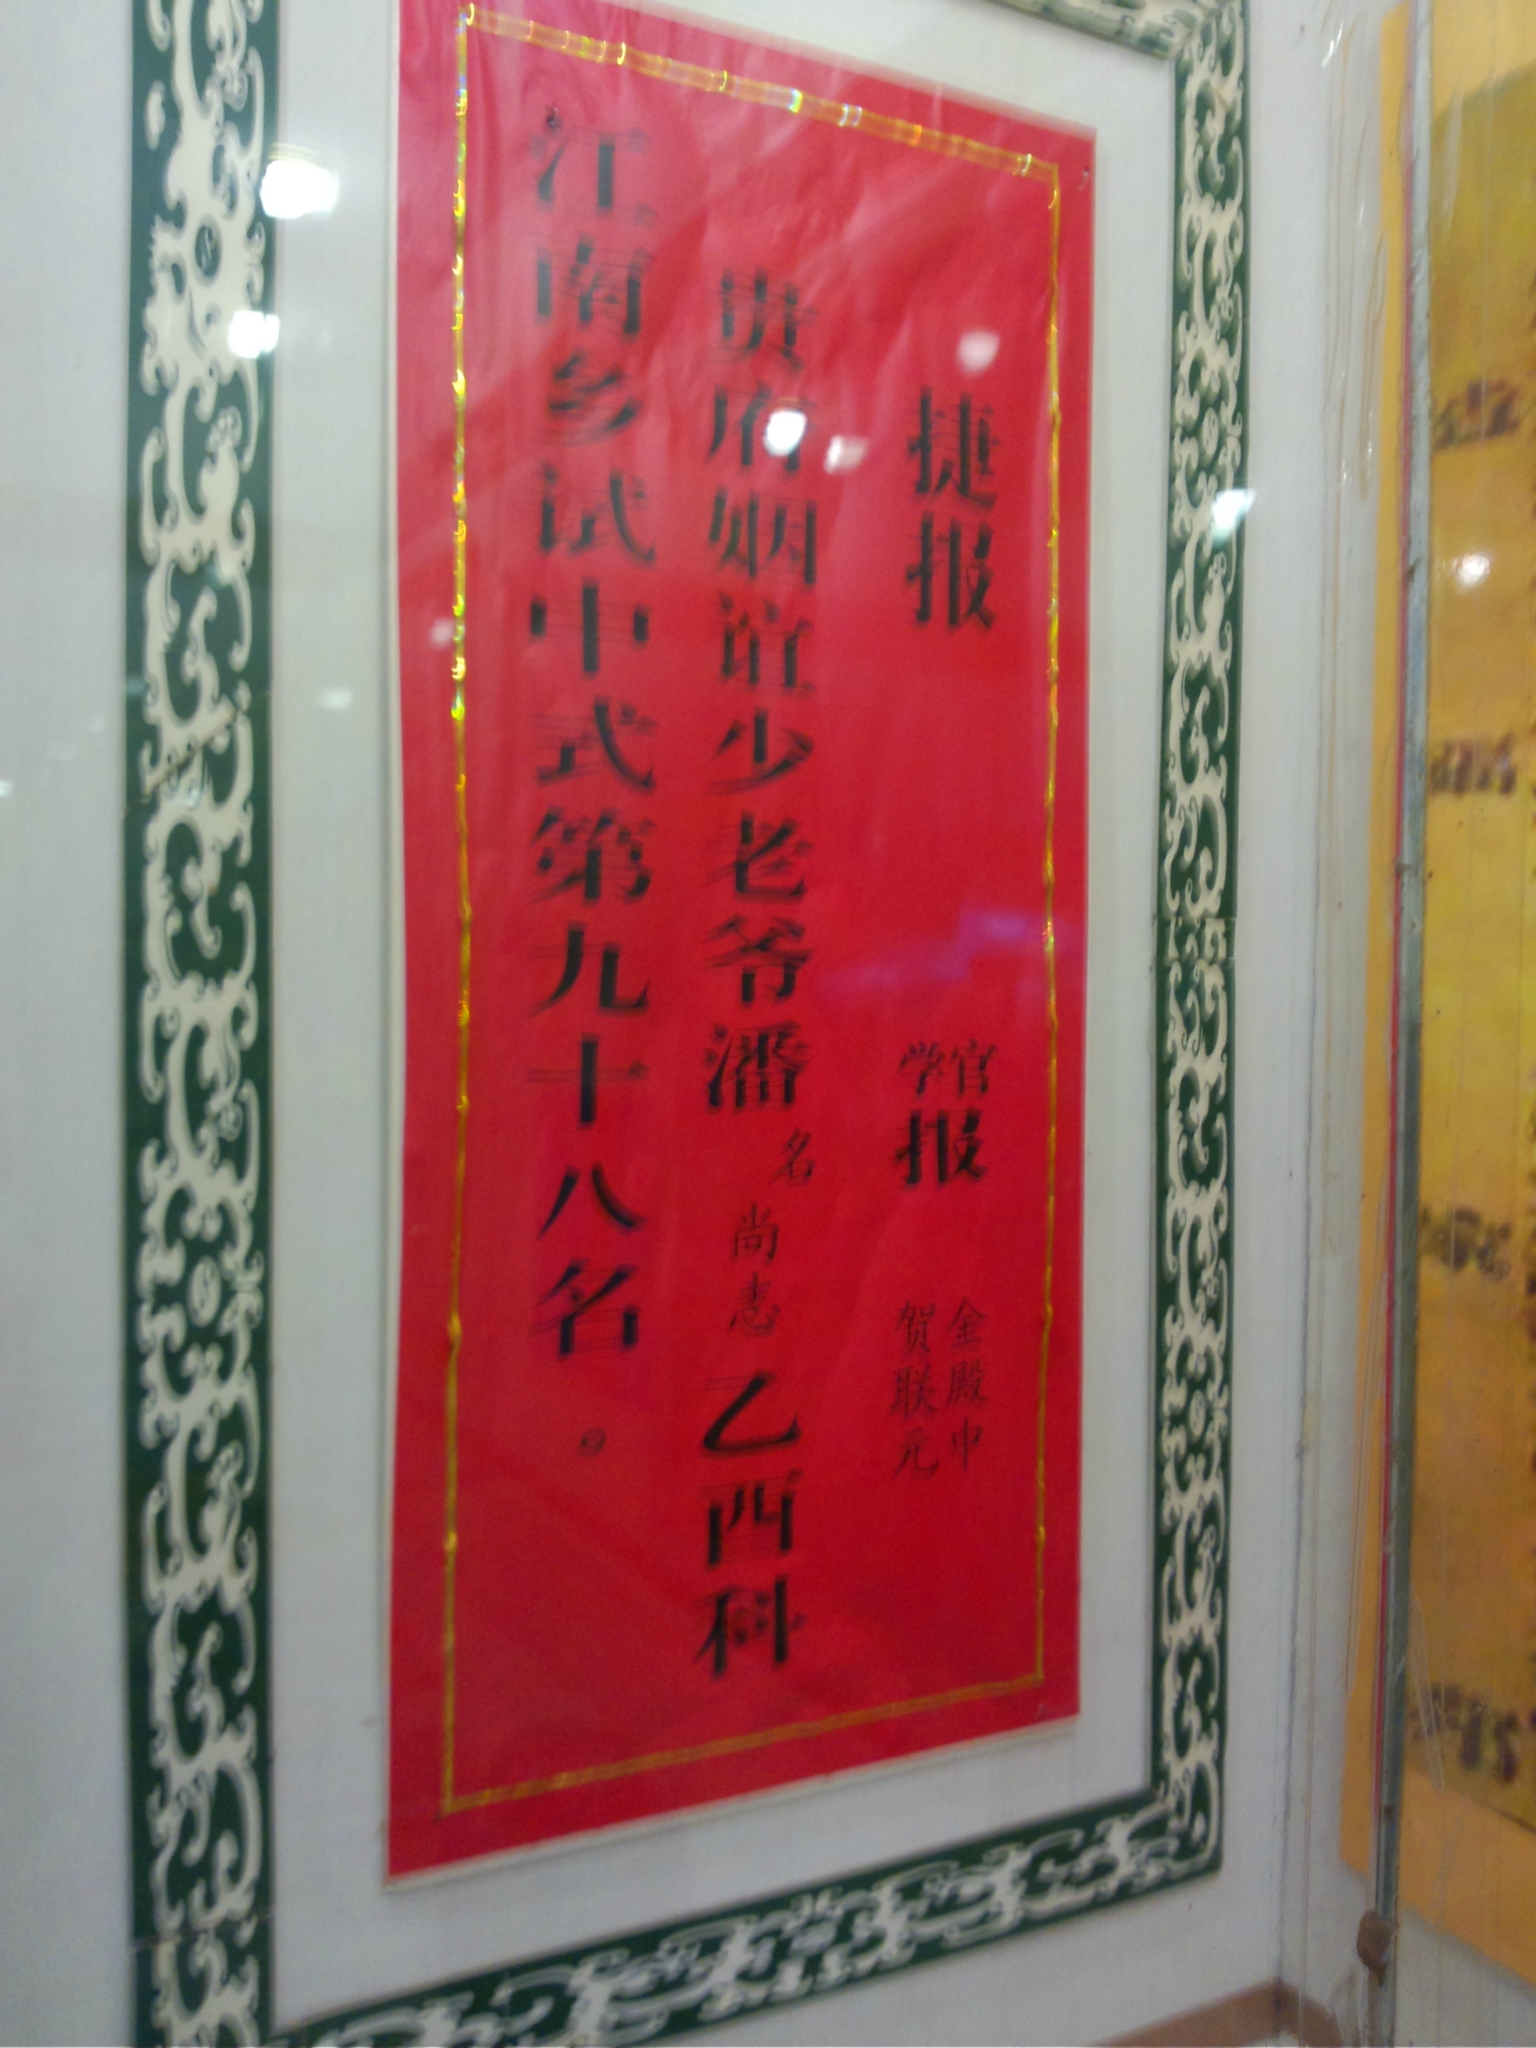 捷报
学官报
金殿申
贺联元
贵府姻谊少老爷潘名尚志乙酉科
江南乡试中式第九十八名。